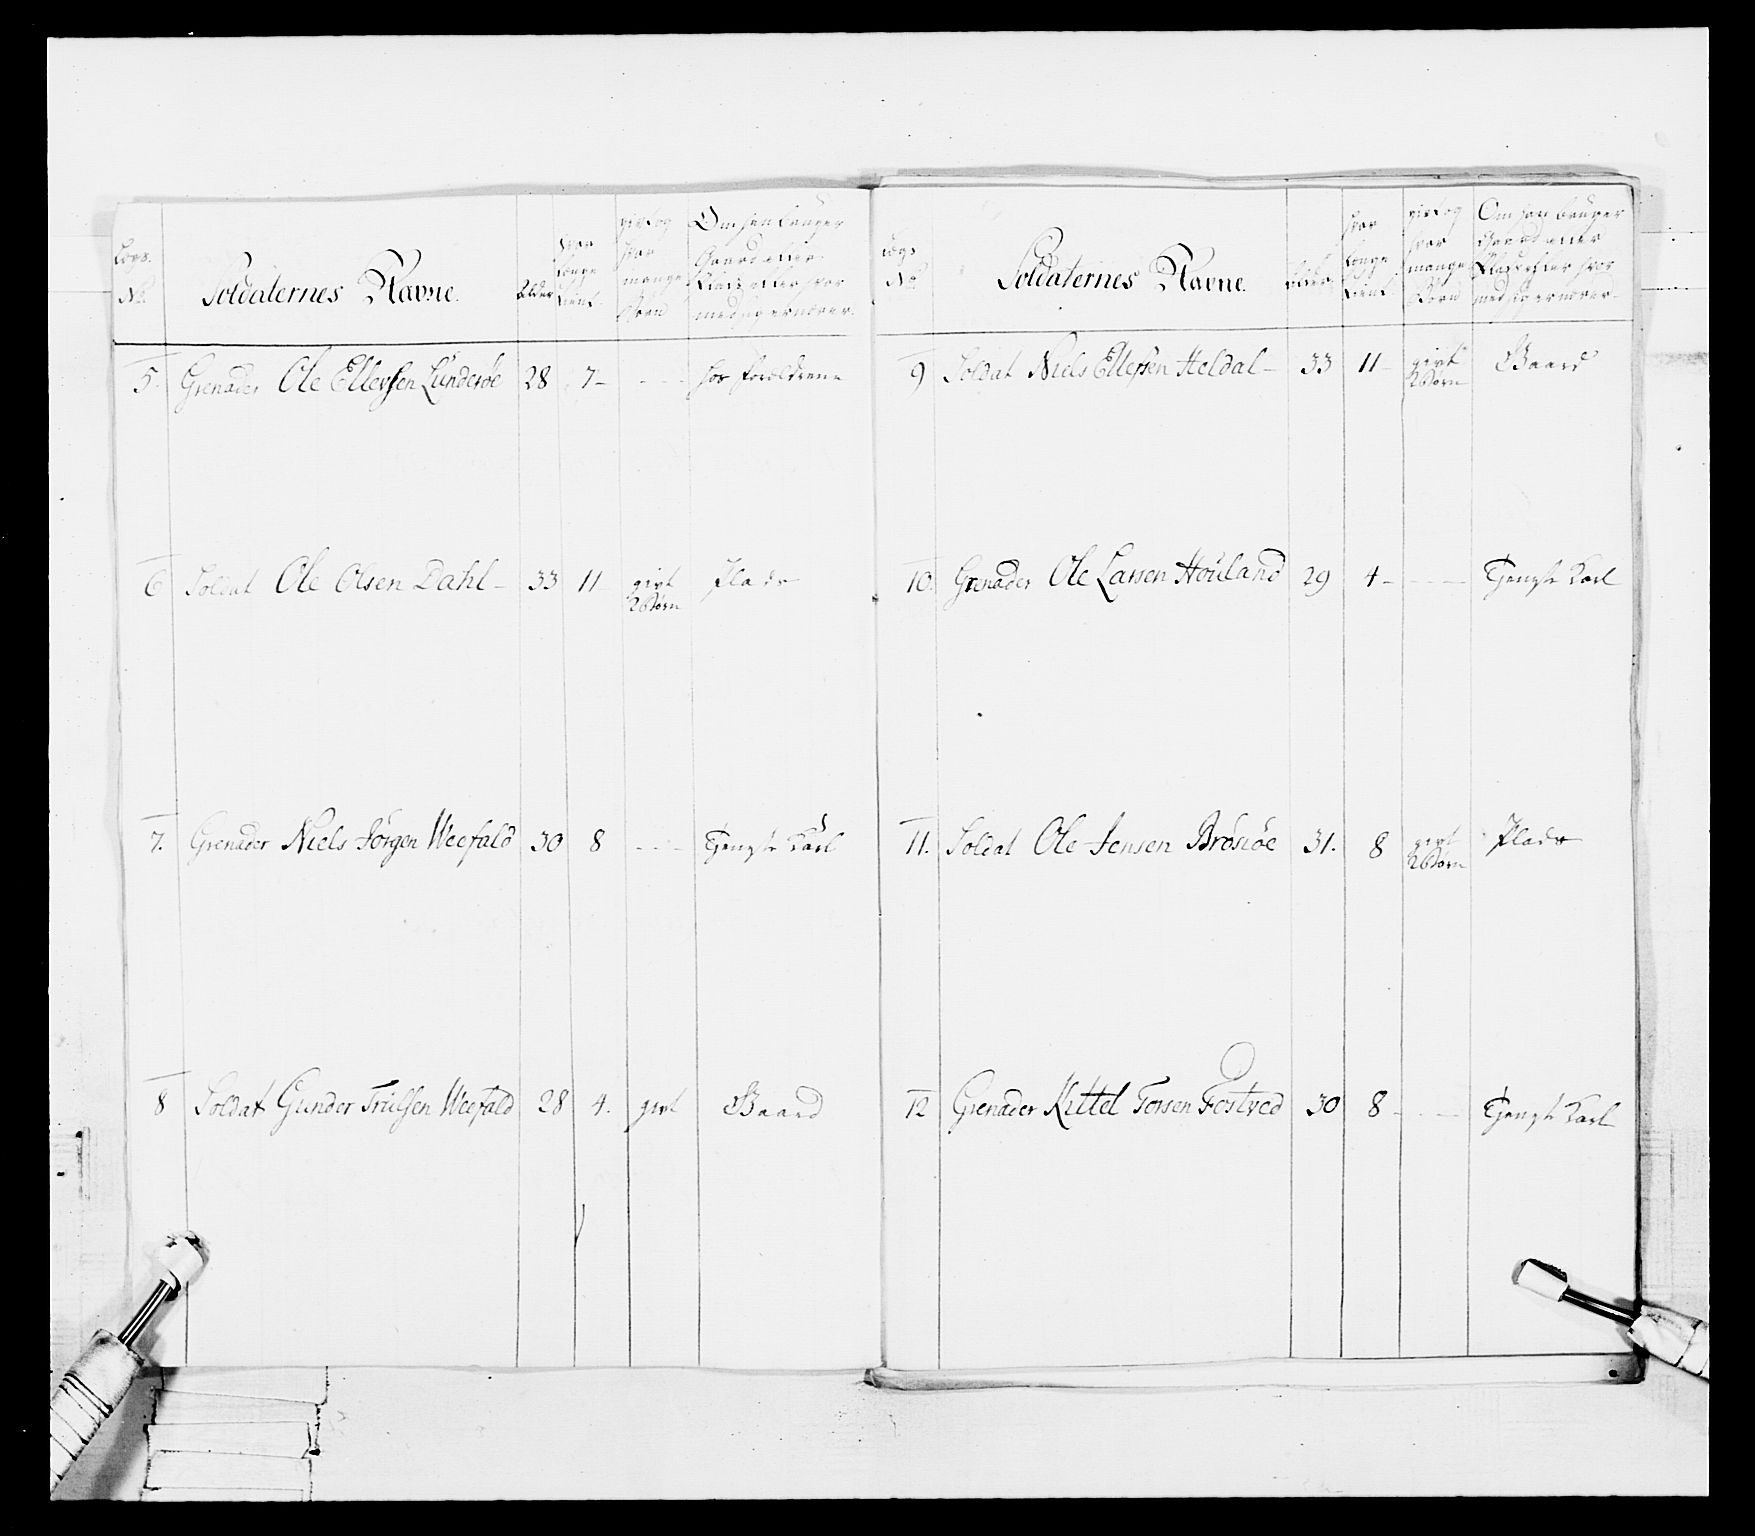 Lægs No. Soldaternes Navne. Alder hvor længe tient. givt og hvor mange Børn Om han bruger Gaard eller Plads eller hvor med sig ernærer.
5. Grenader Ole Ellefsen Lunderöe 28 7 - - - - hos Forældrene
6 Soldat Ole Olsen Dahl - 33 11 givt 2 Börn Plads
7. Grenader Niels Jörgen Weefald 30 8 - - - Tjeneste Karl
8 Soldat Gunder Trulsen Weefald 28 4. givt Gaard
Lægs No. Soldaternes Navne Alder. hvor længe tient. givt og hvor mange Börn Om han bruger Gaard eller Plads eller hvor med sig ernærer.
9 Soldat Niels Ellefsen Heldal - 33 11 - givt 2 Börn Gaard
10. Grenader Ole Larsen Houland 29 4 - - - - Tjeneste Karl
11. Soldat Ole Jensen Brösiöe 31. 8 givt 2 Börn Plads
12 Grenader Kittel Torsen Fostved 30 8 - - - Tjeneste Karl